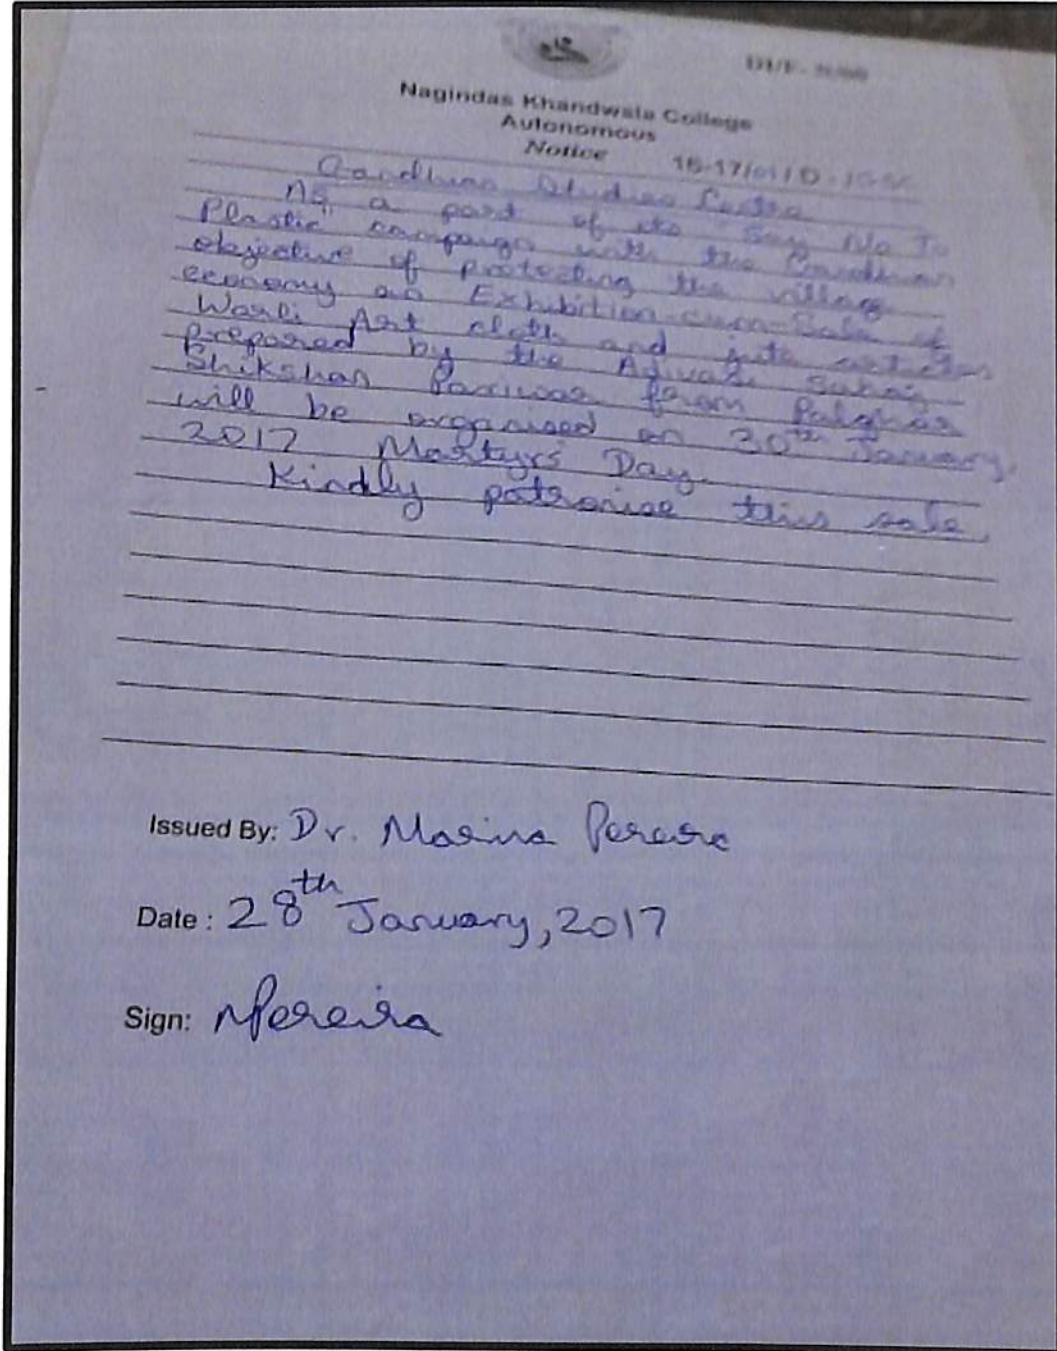 Nagindas Khandwala College
Autonomous
Notice
Gandhian Studies Centre
As a part of its "Say No To
Plastic" campaign with the Gandhian
objective of protecting the village
economy an Exhibition-cum-Sale of
Warli Art cloth and jute articles
prepared by the Adivasi Sahaj
Shikshan Parivar from Palghar
will be organised on 30th January,
2017 Martyrs' Day.
Kindly patronise this sale.
Issued By: Dr. Marina Pereira
Date : 28th January, 2017
Sign: MPereira